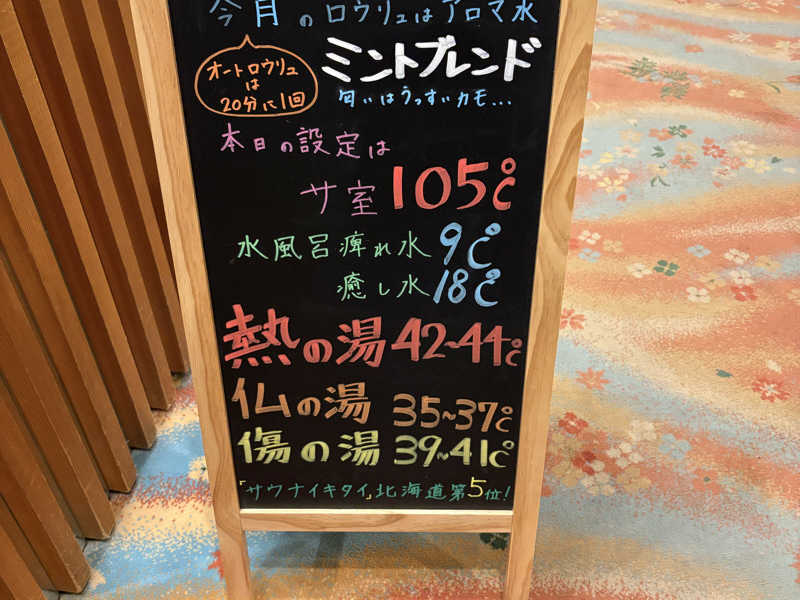 今月のロウリュはアロマ水
オートロウリュ
は
20分に1回
ミントブレンド
匂いはうっすぃカモ...
本日の設定は
サ室 105℃
水風呂痺れ水 9℃
癒し水 18℃
熱の湯 42~44℃
仏の湯 35~37℃
傷の湯 39~41℃
「サウナイキタイ」北海道第5位!